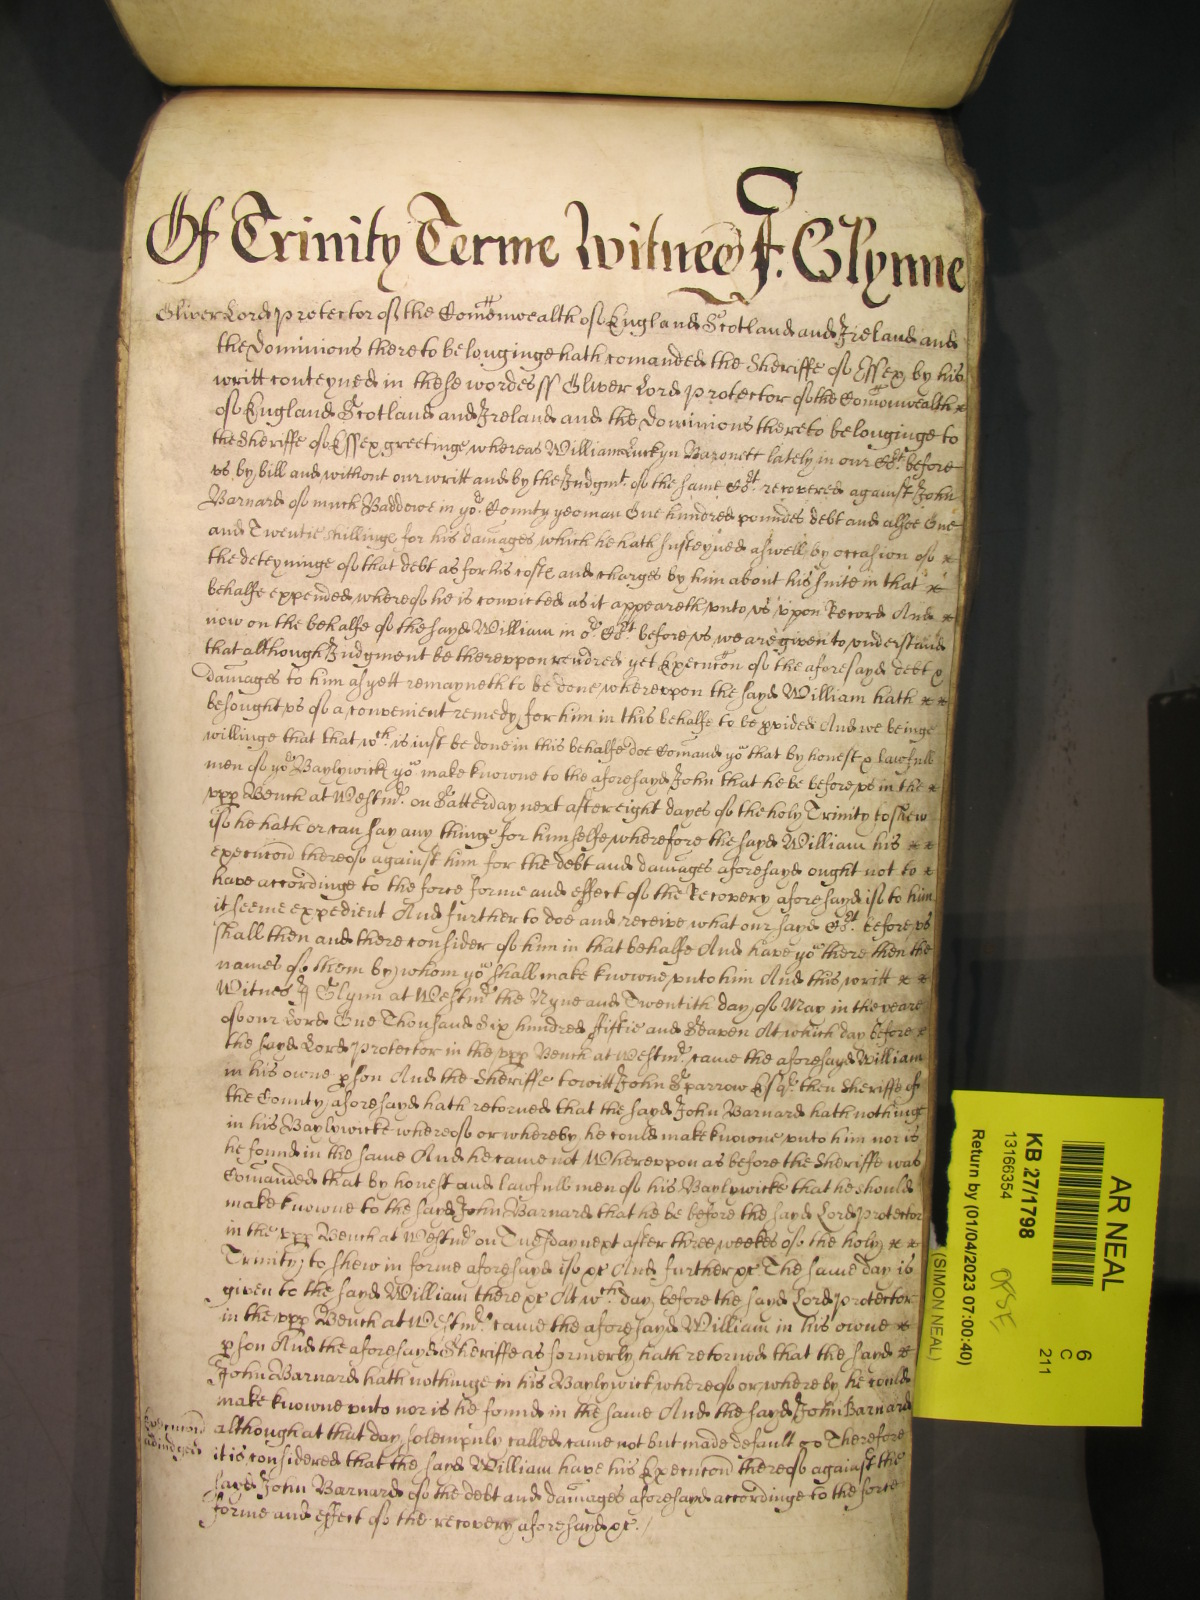 Of Trinity Terme Witnes J. Glynne
Oliver Lord Protector of the Com̄onwealth of England Scotland and Ireland and
the Dominions thereto belonginge hath com̄anded the Sheriffe of Essex by his
writt conteyned in these wordes ss Oliver Lord Protector of the Com̄onwealth
of England Scotland and Ireland and the Dominions thereto belonginge to
the Sheriffe of Essex greetinge whereas William Luckyn Baronett lately in our Co:t before
vs by bill and without our writt and by the Judgmt. of the same Co:t recovered against John
Barnard of much Baddowe in yor. County yeoman One hundred poundes debt and alsoe One
and Twentie shillings for his damages which he hath susteyned aswell by occasion of
the deteyninge of that debt as for his costs and charges by him about his suite in that
behalfe expended whereof he is convicted as it appeareth vnto vs vpon Record And
now on the behalfe of the sayd William in or. Co:t before vs we are given to vnderstand
that although Judgment be therevpon rendred yet Execucōn of the aforesayd debt &
damages to him as yett remayneth to be done wherevpon the sayd William hath
besought vs of a convenient remedy for him in this behalfe to be pvided And we beinge
willinge that that wch. is iust be done in this behalfe doe Com̄and you that by honest & lawfull
men of yor Baylywick you make knowne to the aforesayd John that he be before vs in the
vpp Bench at Westmr. on Satterday next after eight dayes of the holy Trinity to shew
if he hath or can say any thinge for himselfe wherefore the sayd William his
execucōn thereof against him for the debt and damages aforesayd ought not to
have accordinge to the force forme and effect of the Recovery aforesayd if to him
it seeme expedient And further to doe and receive what our sayd Co:t before vs
shall then and there consider of him in that behalfe And have you there then the
names of them by whom you shall make knowne vnto him And this writt
Witnes J Glynn at Westmr. the Nyne and Twentith day of May in the yeare
of our Lord One Thousand Six hundred fiftie and Seaven At which day before
the sayd Lord Protector in the vpp Bench at Westmr. came the aforesayd William
in his owne pson And the Sheriffe towitt John Sparrow Esqr. then Sheriffe of
the County aforesayd hath retorned that the sayd John Barnard hath nothing
in his Baylywicke whereof or whereby he could make knowne vnto him nor is
he found in the same And he came not Wherevpon as before the Sheriffe was
Com̄anded that by honest and lawfull men of his Baylywicke that he should
make knowne to the sayd John Barnard that he be before the sayd Lord Protector
in the vpp Bench at Westmr on Tuesday next after three weekes of the holy
Trinity; to shew in forme aforesayd if &c And further &c The same day is
given to the sayd William there &c At wch day, before the sayd Lord Protector
in the vpp Bench at Westmr. came the aforesayd William in his owne
pson And the aforesayd Sheriffe as formerly hath retorned that the sayd
John Barnard hath nothinge in his Baylywick whereof or whereby he could
make knowne vnto nor is he found in the same And the sayd John Barnard
although at that day solempnly called came not but made default Therefore
it is considered that the sayd William have his Execucōn thereof against the
sayd John Barnard of the debt and damages aforesayd accordinge to the force
forme and effect of the recovery aforesayd &c.
Execucōn
adiudged
AR NEAL
KB 27/1798
13166354
Return by (01/04/2023 07:00:40)
(SIMON NEAL)
6
C
211